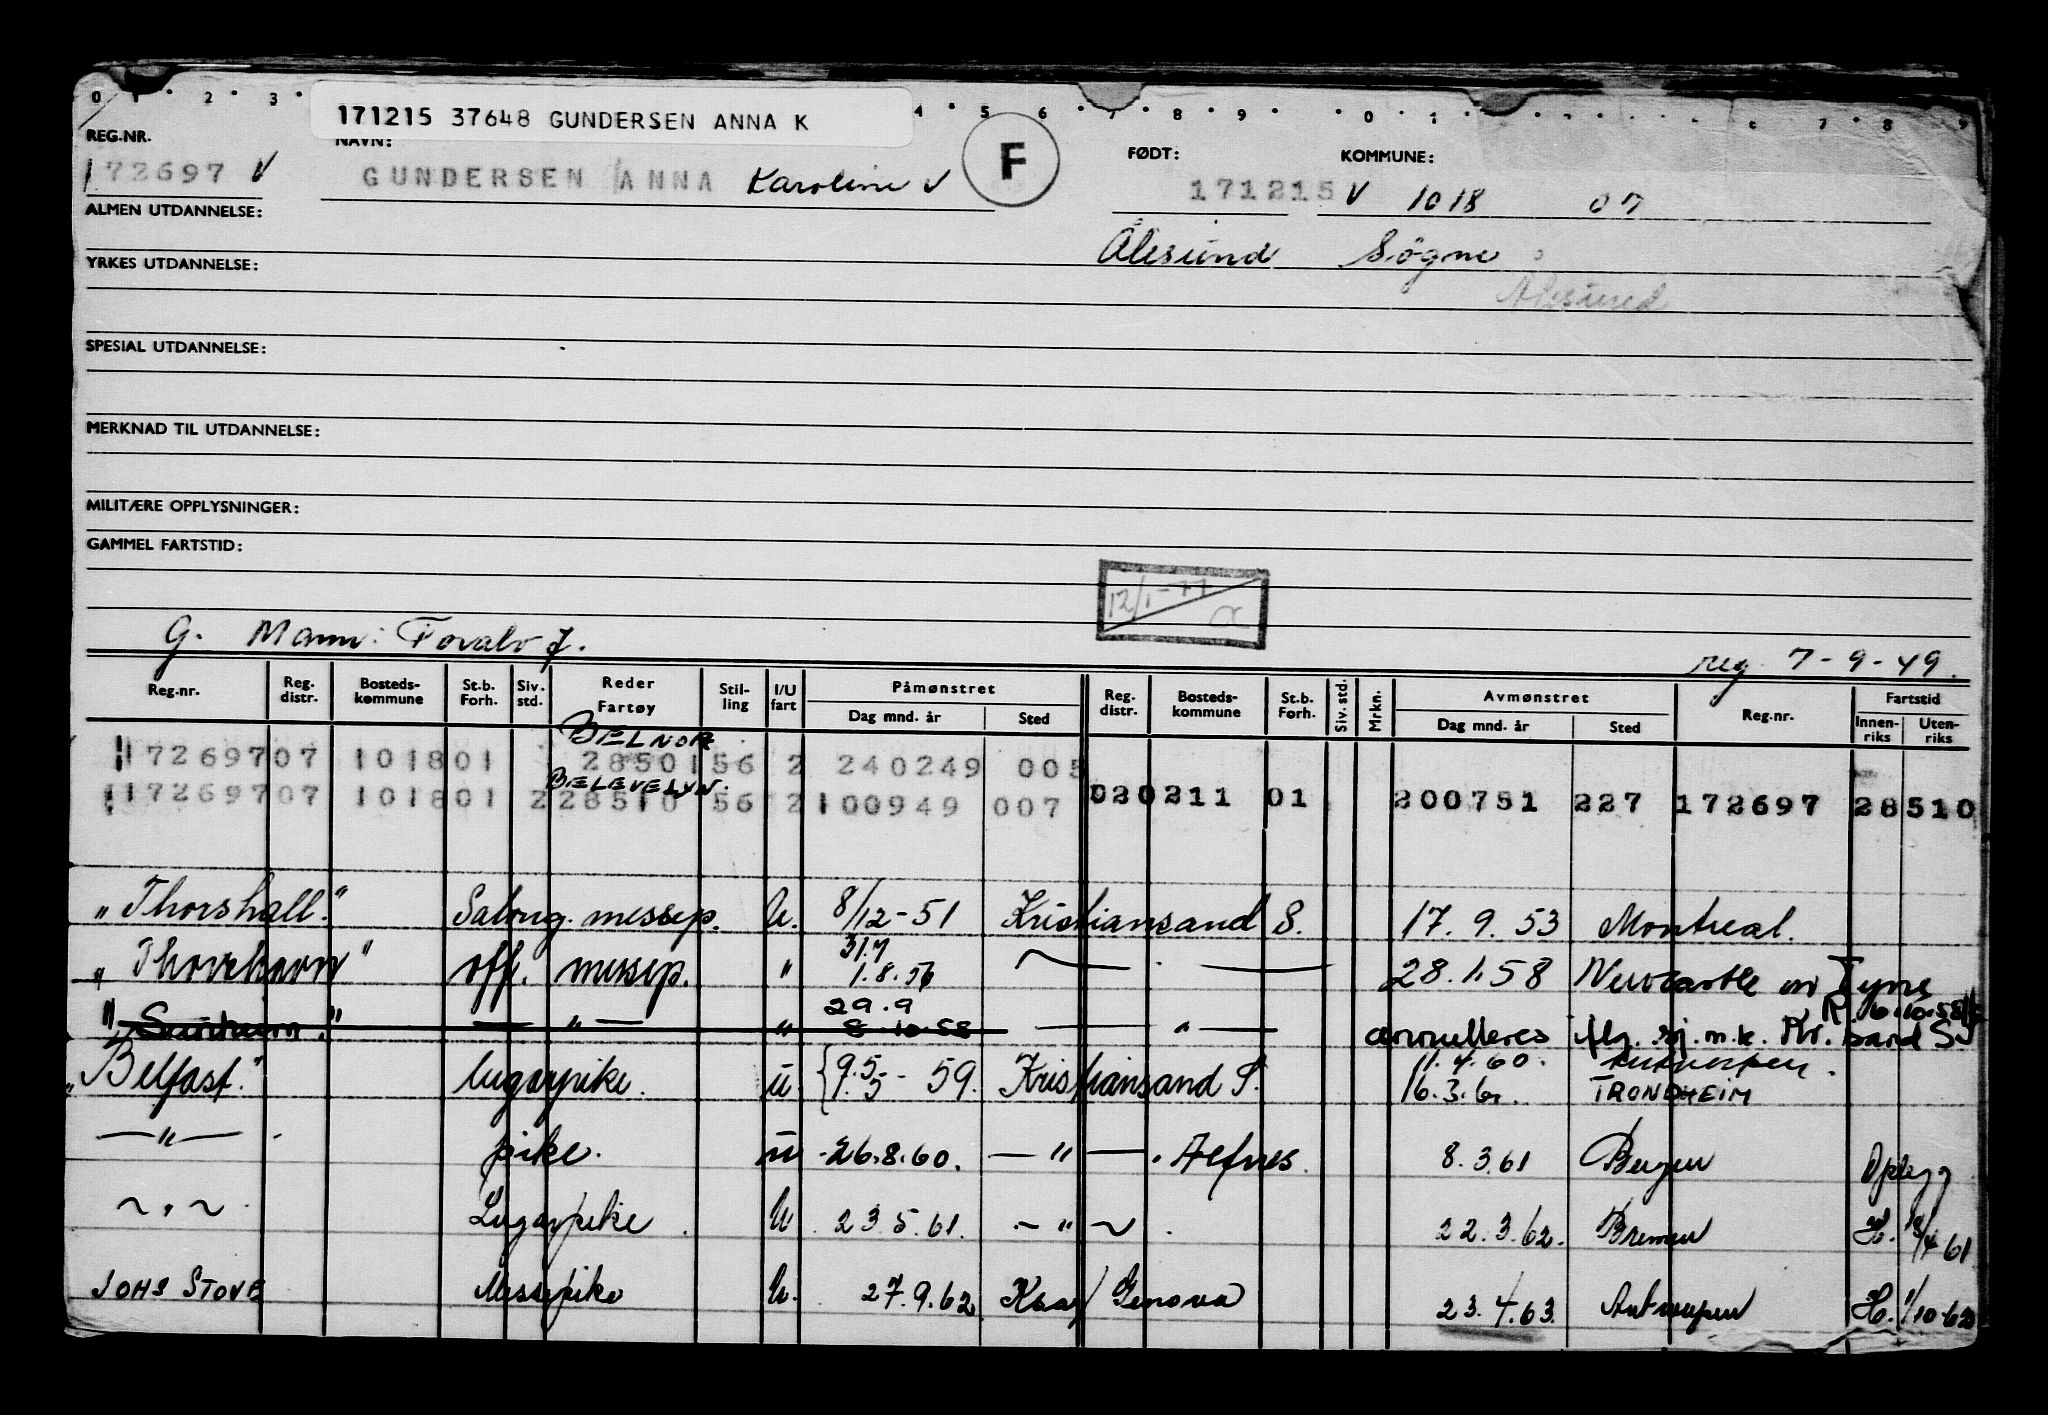 0 1 2 3 4 5 6 7 8 9 0 1 7 8 9
171215 37648 GUNDERSEN ANNA K
REG.NR. NAVN: F FØDT: KOMMUNE:
172697 V GUNDERSEN ANNA Karoline V 171215 V 1018 07
ALMEN UTDANNELSE:
Ålesund Søgne
YRKES UTDANNELSE:
Ålesund
SPESIAL UTDANNELSE:
MERKNAD TIL UTDANNELSE:
MILITÆRE OPPLYSNINGER:
GAMMEL FARTSTID:
12/1-77
G. Mann: Toralv J.
reg. 7-9-49.
Reg.nr. Reg. distr. Bosteds- kommune St.b. Forh. Siv. std. Reder Fartøy Stil- ling I/U fart Påmønstret Dag mnd. år Sted Reg. distr. Bosteds- kommune St.b. Forh. Siv. std. Mrkn. Avmønstret Dag mnd. år Sted Reg.nr. Fartstid Innen- riks Uten- riks
BELNOR
172697 07 1018 01 28501 56 2 240249 005
BELEVELYN.
172697 07 1018 01 2 28510 56 2 100949 007 02 0211 01 200751 227 172697 28510
"Thorshall." Salong. messep. U. 8/12-51 Kristiansand S. 17.9.53 Montreal.
31.7
"Thorshavn" off. messep. " 1.8.56 28.1.58 Newcastle on Tyne
29.9
" " — " — " 8-10-58 — " — annulleres R. 6.10.58 Kr.sand S
"Belfast." lugarpike. u 9.5.-59. Kristiansand S. 11.4.60. Antwerpen.
16.3.61. TRONDHEIM
— " — . pike. u 26.8.60. — " — . 8.3.61 Bergen
~ " ~ Lugarpike. U 23.5.61. — " ~ . 22.3.62. Bremen H. /4 61
JOHS STOVE Messepike U. 27.9.62 Genova 23.4.63. Antwerpen H. 1/10-62